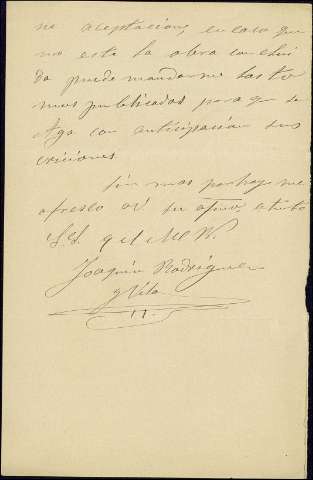 ne aceptacion, en caso que
no esté la obra conclui
da puede mandarme los to
mos publicados para que se
aga con anticipacion sus
criciones
Sin mas por hoy me
ofresco a V su afmo. atento
S.S. q
Joaquin Rodriguez
y Vila